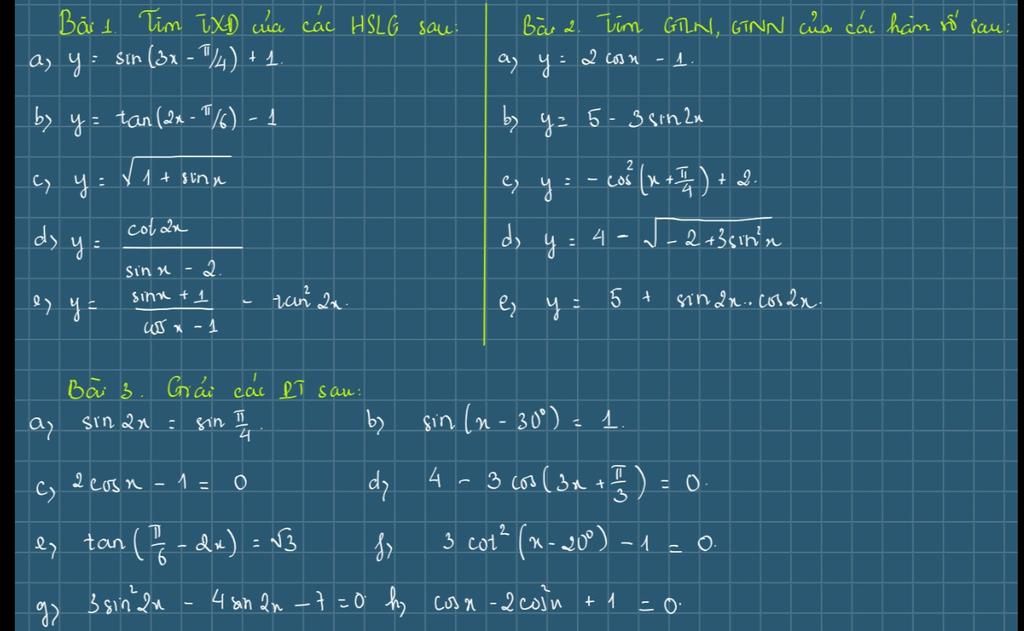 Bài 1. Tìm TXĐ của các HSLG sau:
a) y = sin(3x - π/4) + 1.
b) y = tan(2x - π/6) - 1
c) y = √(1 + sinx)
d) y = cot2x / (sinx - 2.)
e) y = (sinx + 1)/(cosx - 1) - tan²2x.
Bài 2. Tìm GTLN, GTNN của các hàm số sau:
a) y = 2cosx - 1.
b) y = 5 - 3sin2x
c) y = -cos²(x + π/4) + 2.
d) y = 4 - √(-2 + 3sin²x)
e) y = 5 + sin2x.cos2x.
Bài 3. Giải các PT sau:
a) sin2x = sin π/4. b) sin(x - 30°) = 1.
c) 2cosx - 1 = 0 d) 4 - 3cos(3x + π/3) = 0.
e) tan(π/6 - 2x) = √3 f) 3cot²(x - 20°) - 1 = 0.
g) 3sin²2x - 4sin2x - 7 = 0 h) cosx - 2cos²x + 1 = 0.